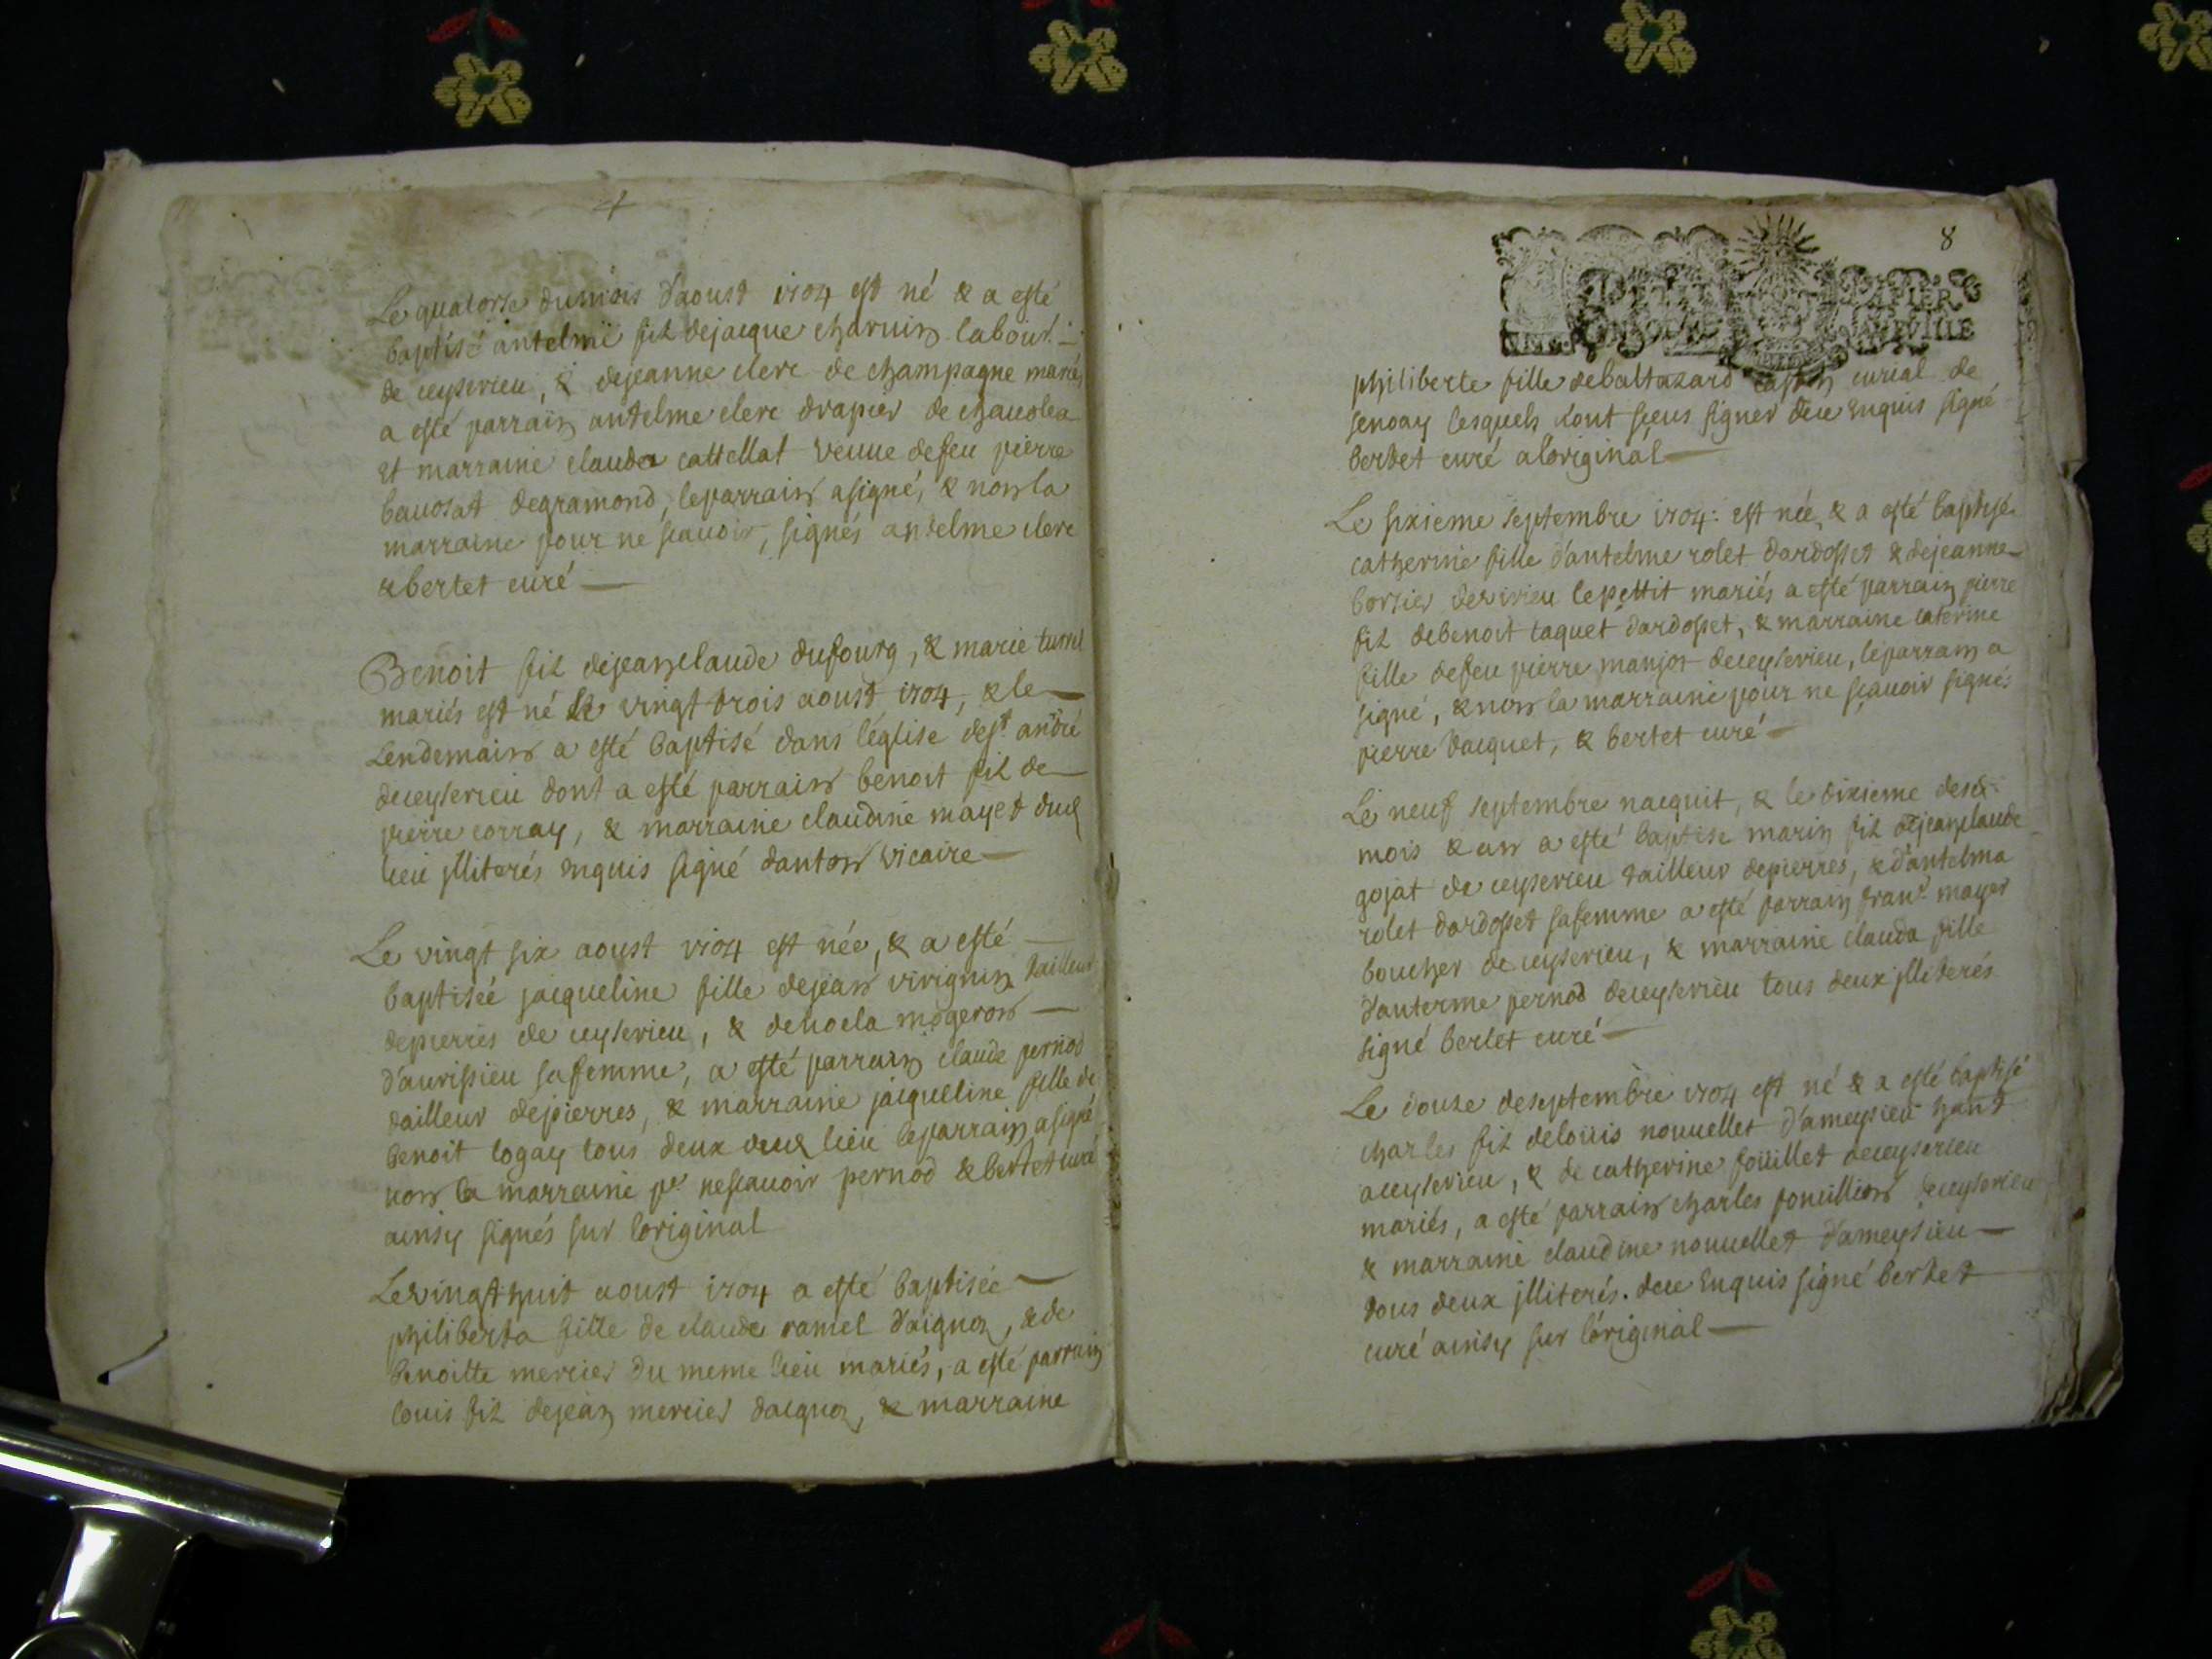 Le quatorse du mois d'aoust 1704 est né & a esté
baptisé antelme fil de jacque charuin labour.
de ceyserieu, & de jeanne clerc de champagne mariés
a esté parrain antelme clerc drapier de chauolea
et marraine clauda cattellat veuue de feu pierre
bauosat de gramond, le parrain a signé, & non la
marraine pour ne scauoir, signés antelme clerc
& bertet curé
Benoit fil de jean claude dufourg, & marie
mariés est né le vingt trois aoust 1704, & le
Lendemain a esté baptisé dans l'église de st andré
de ceyserieu dont a esté parrain benoit fil de
pierre corray, & marraine claudine mayet dud
lieu jlliterés enquis signé danton vicaire
Le vingt six aoust 1704 est née, & a esté
baptisée jacqueline fille de jean virignin tailleur
de pierres de ceyserieu, & de noela mogeron
d'aurissieu sa femme, a esté parrain claude pernod
tailleur de pierres, & marraine jacqueline fille de
benoit togay tous deux dud lieu le parrain a signé
non la marraine pr ne scauoir pernod & bertet curé
ainsy signés sur l'original
Le vingt huit aoust 1704 a esté baptisée
philiberta fille de claude ramel d'aignoz, & de
benoitte mercier du meme lieu mariés, a esté parrain
louis fil de jean mercier d'aignoz, & marraine
8
philiberte fille de baltazard curial de
senoay lesquels n'ont sceus signer de ce enquis signé
bertet curé a l'original
Le sixieme septembre 1704: est née, & a esté baptisé
catherine fille d'antelme rolet d'ardosset & de jeanne
borsier de virieu le pettit mariés a esté parrain pierre
fil de benoit taquet d'ardosset, & marraine caterine
fille de feu pierre manjot de ceyserieu, le parrain a
signé, & non la marraine pour ne scauoir signés
pierre tacquet, & bertet curé
Le neuf septembre nacquit, & le dixieme desd.
mois & an a esté baptisé marin fil de jean claude
gojat de ceyserieu tailleur de pierres, & d'antelma
rolet d'ardosset sa femme a esté parrain franc. mayet
boucher de ceyserieu, & marraine clauda fille
d'anterme pernod de ceyserieu tous deux jlliterés
signé bertet curé
Le douse de septembre 1704 est né & a esté baptisé
charles fil de loüis nouuellet d'ameysieu hant
a ceyserieu, & de catherine foüillet de ceyserieu
mariés, a esté parrain charles ponuillion de ceyserieu
& marraine claudine nouuellet d'ameysieu
tous deux jlliterés. de ce enquis signé bertet
curé ainsy sur l'original